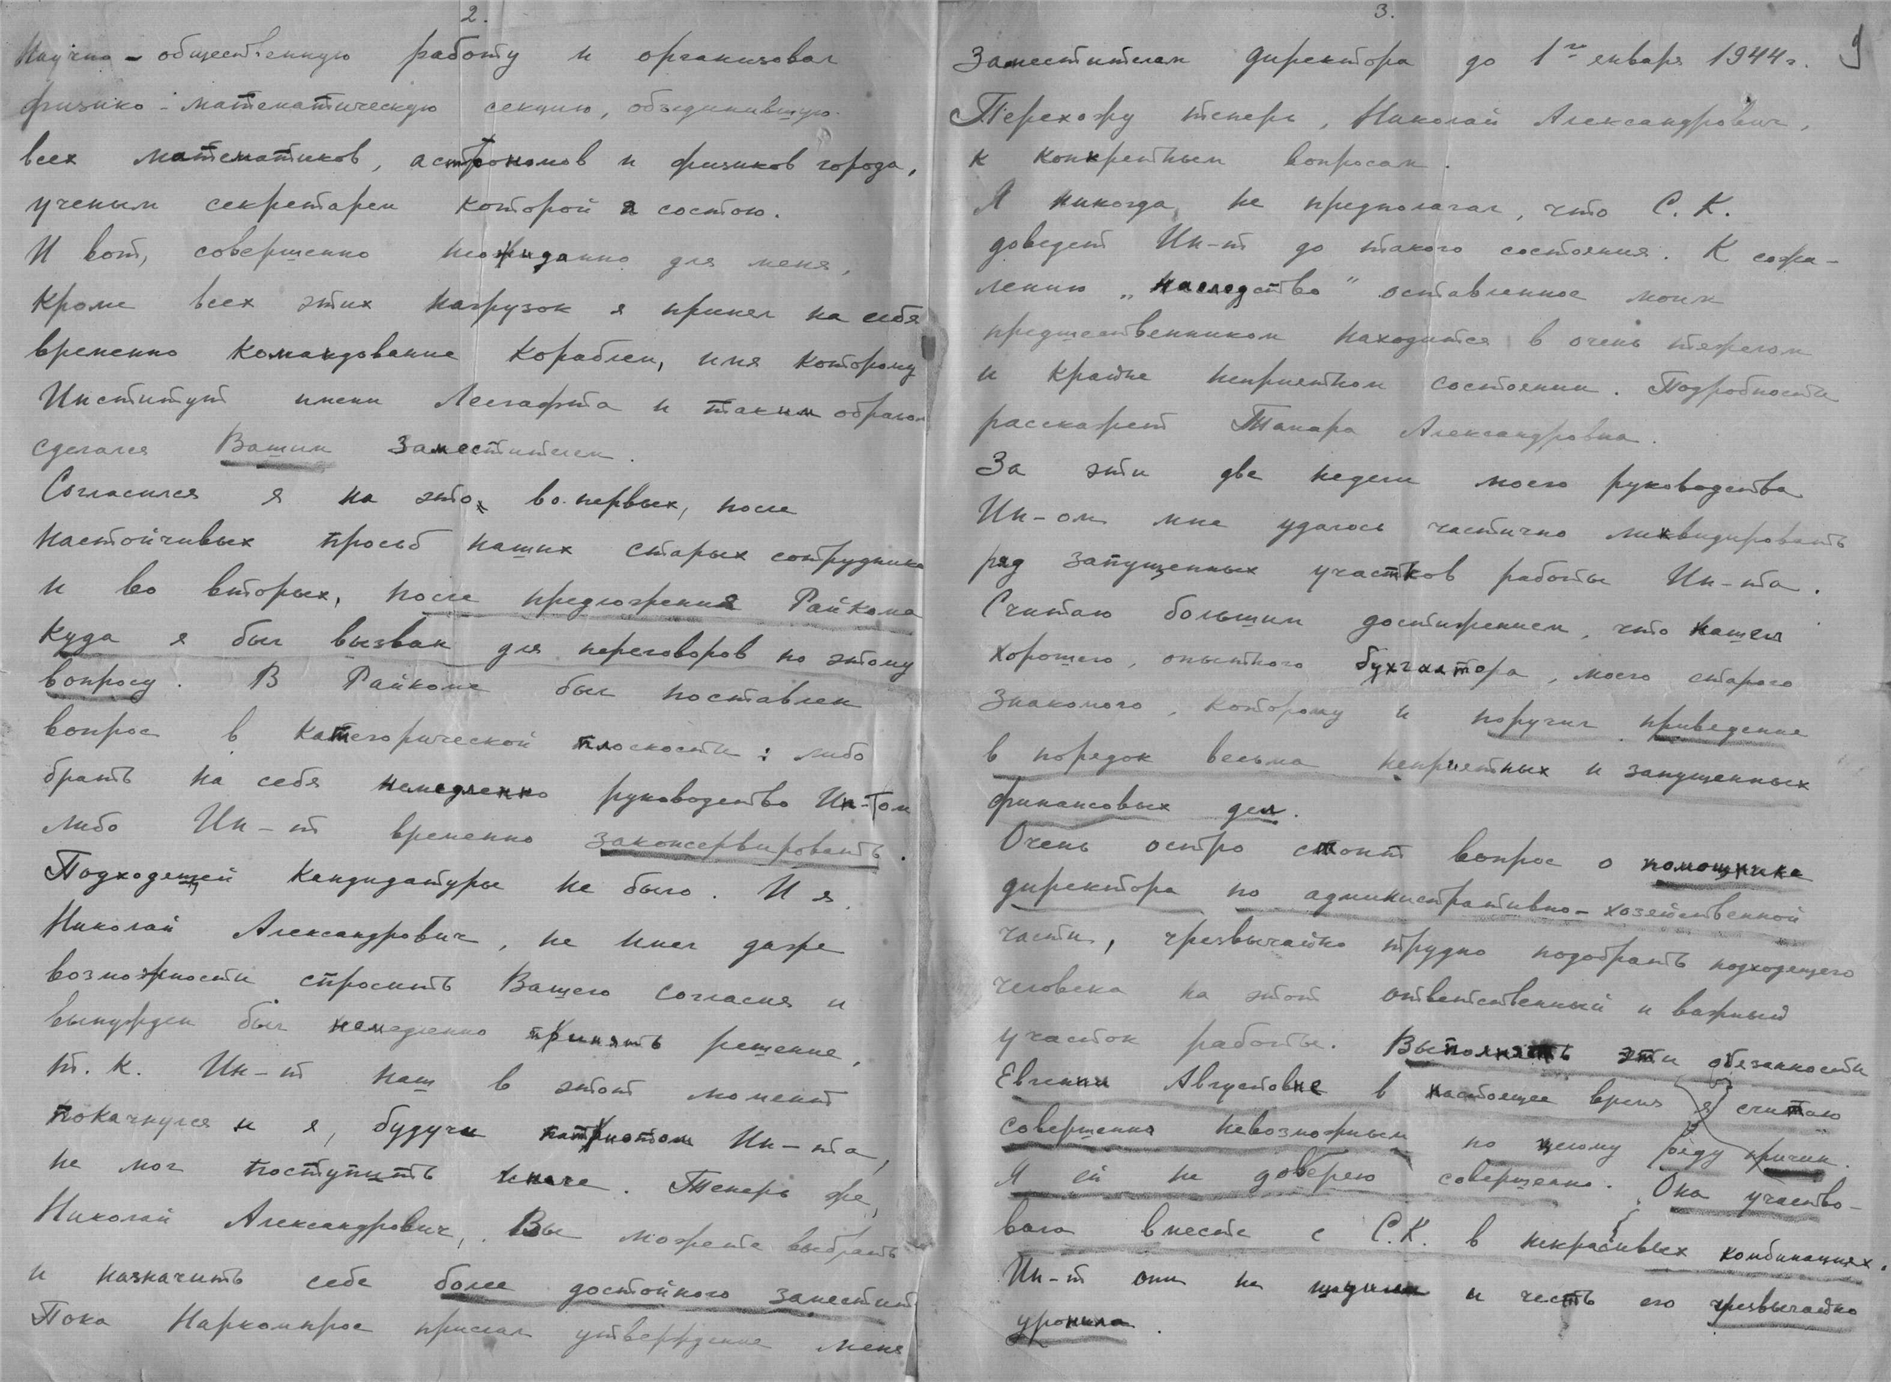 2.
Научно - общественную работу и организовал
физико - математическую секцию, объединившую
всех математиков, астрономов и физиков города,
ученым секретарем которой я состою.
И вот, совершенно неожиданно для меня,
кроме всех этих нагрузок я принял на себя
временно командование кораблем, имя которому
Институт имени Лесгафта и таким образом
сделался Вашим заместителем.
Согласился я на это, во-первых, после
настойчивых просьб наших старых сотрудников
и во вторых, после предложения Райкома
куда я был вызван для переговоров по этому
вопросу. В Райкоме был поставлен
вопрос в категорической плоскости: либо
брать на себя немедленно руководство Ин-том
либо Ин-т временно законсервировать.
Подходящей кандидатуры не было. И я,
Николай Александрович, не имел даже
возможности спросить Вашего согласия и
вынужден был немедленно принять решение,
т. к. Ин-т наш в этот момент
покачнулся и я, будучи патриотом Ин-та,
не мог поступить иначе. Теперь же,
Николай Александрович, Вы можете выбрать
и назначить себе более достойного заместит
Пока Наркомпрос прислал утверждение меня
3.
9
Заместителем директора до 1го января 1944 г.
Перехожу теперь, Николай Александрович,
к конкретным вопросам.
Я никогда не предполагал, что С. К.
доведет Ин-т до такого состояния. К сожа-
лению „наследство" оставленное моим
предшественником находится в очень тяжелом
и крайне неприятном состоянии. Подробности
расскажет Тамара Александровна.
За эти две недели моего руководства
Ин-ом мне удалось частично ликвидировать
ряд запущенных участков работы Ин-та.
Считаю большим достижением, что нашел
хорошего, опытного бухгалтера, моего старого
знакомого, которому и поручил приведение
в порядок весьма неприятных и запущенных
финансовых дел.
Очень остро стоит вопрос о помощнике
директора по административно-хозяйственной
части, чрезвычайно трудно подобрать подходящего
человека на этот ответственный и важный
участок работы. Выполнять эти обязанности
Евгении Августовне в настоящее время я считаю
совершенно невозможным по целому ряду причин.
Я ей не доверяю совершенно. Она участво-
вала вместе с С. К. в некрасивых комбинациях.
Ин-т они не щадили и честь его чрезвычайно
уронила.